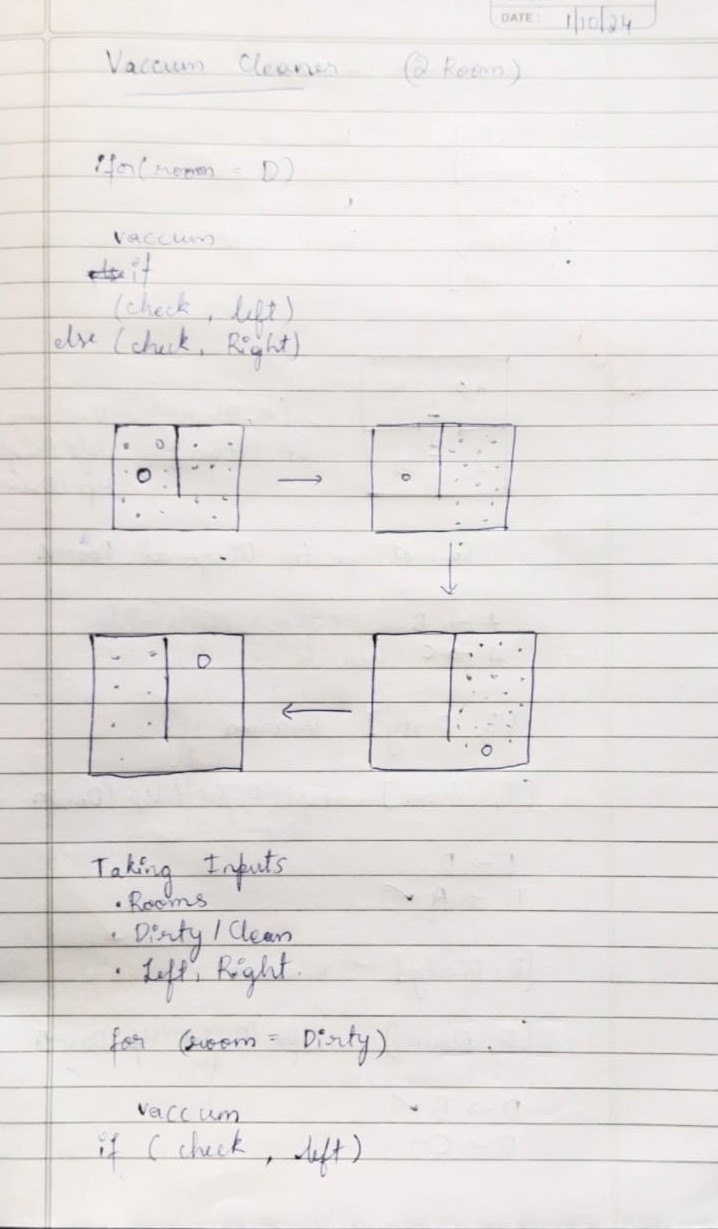 DATE: 1/10/24
Vaccum Cleaner (2 Room)
for (room = D)
vaccum
if
(check, left)
else (check, Right)
Taking Inputs
• Rooms
• Dirty / Clean
• Left, Right.
for (room = Dirty)
vaccum
if ( check , left)